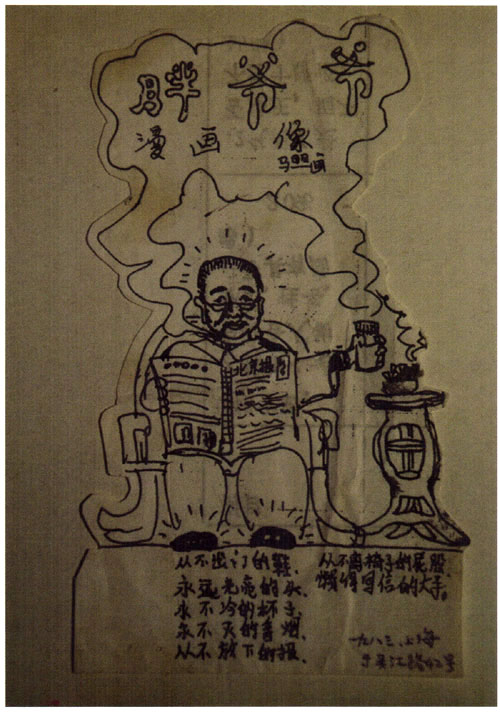 胖爷爷
漫画像
北京
从不出门的鞋、
永远光亮的头、
永不冷的杯子、
永不灭的香烟、
从不放下的报、
从不离椅子的屁股、
懒得写信的大手。
一九八三、上海
于吴江路42号